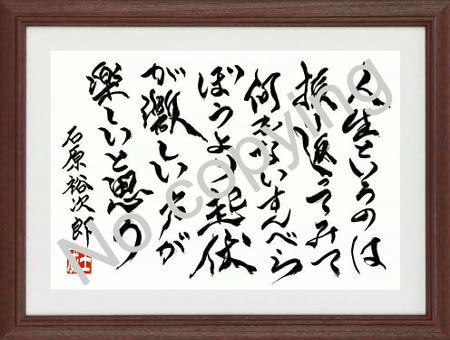 人生というのは
振り返ってみて
何もないすんべら
ぼうより起伏
が激しい方が
楽しいと思う
石原裕次郎
No copying